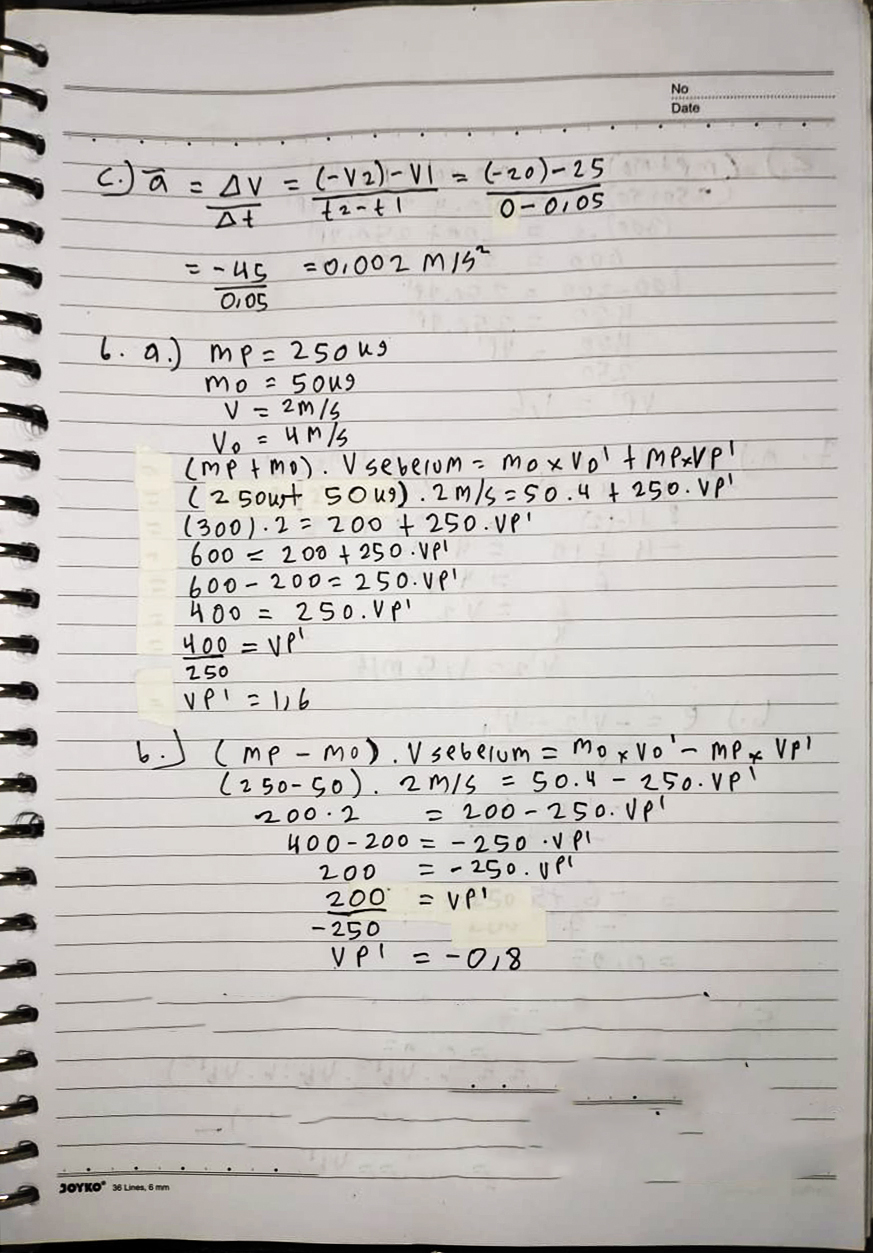 No
Date
C.) a̅ = ΔV/Δt = (-V2)-V1/t2-t1 = (-20)-25/0-0,05
= -45/0,05 = 0,002 m/s²
6. a.) mp = 250 kg
mo = 50kg
V = 2m/s
Vo = 4m/s
(mp + mo). V sebelum = mo x Vo' + mp x Vp'
(250kg + 50kg). 2m/s = 50.4 + 250. Vp'
(300).2 = 200 + 250.Vp'
600 = 200 + 250.Vp'
600 - 200 = 250.Vp'
400 = 250.Vp'
400/250 = Vp'
Vp' = 1,6
b.) (mp - mo). V sebelum = mo x Vo' - mp x Vp'
(250-50). 2m/s = 50.4 - 250. Vp'
200.2 = 200 - 250. Vp'
400-200 = -250 .Vp'
200 = -250. Vp'
200/-250 = Vp'
Vp' = -0,8
JOYKO® 36 Lines, 6 mm